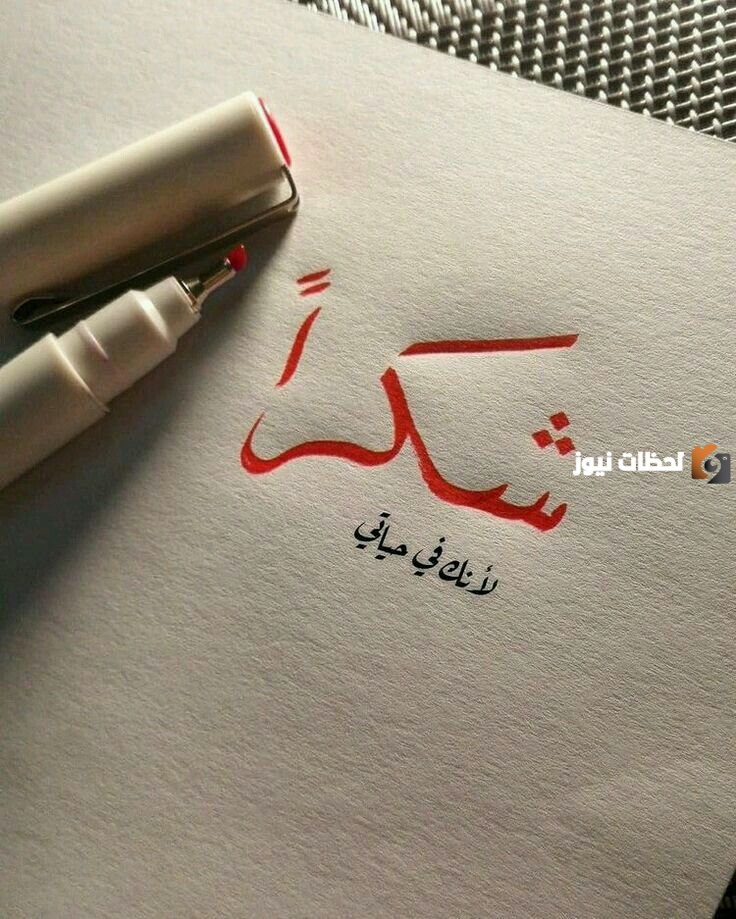 شكراً
لأنك في حياتي
لحظات نيوز